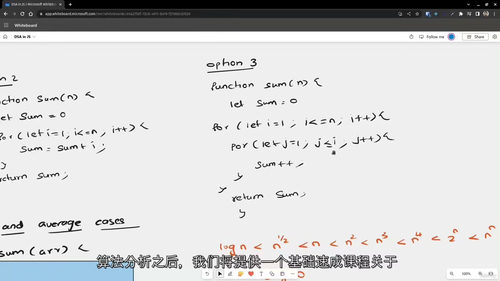 DSA in JS | Microsoft Whiteboard
Whiteboard
DSA in JS
Share
option 3
function sum(n) {
let sum = 0
for (let i=1, i<=n, i++) {
for (let j=1, j≤i, j++) {
sum++,
}
}
return sum,
}
on 2
nction sum(n) {
let sum = 0
for (let i=1, i<=n, i++) {
sum = sum + i,
}
return sum,
and average cases
sum(arr) {
log n < n^1/2 < n < n^2 < n^3 < n^4 < 2^n
算法分析之后，我们将提供一个基础速成课程关于